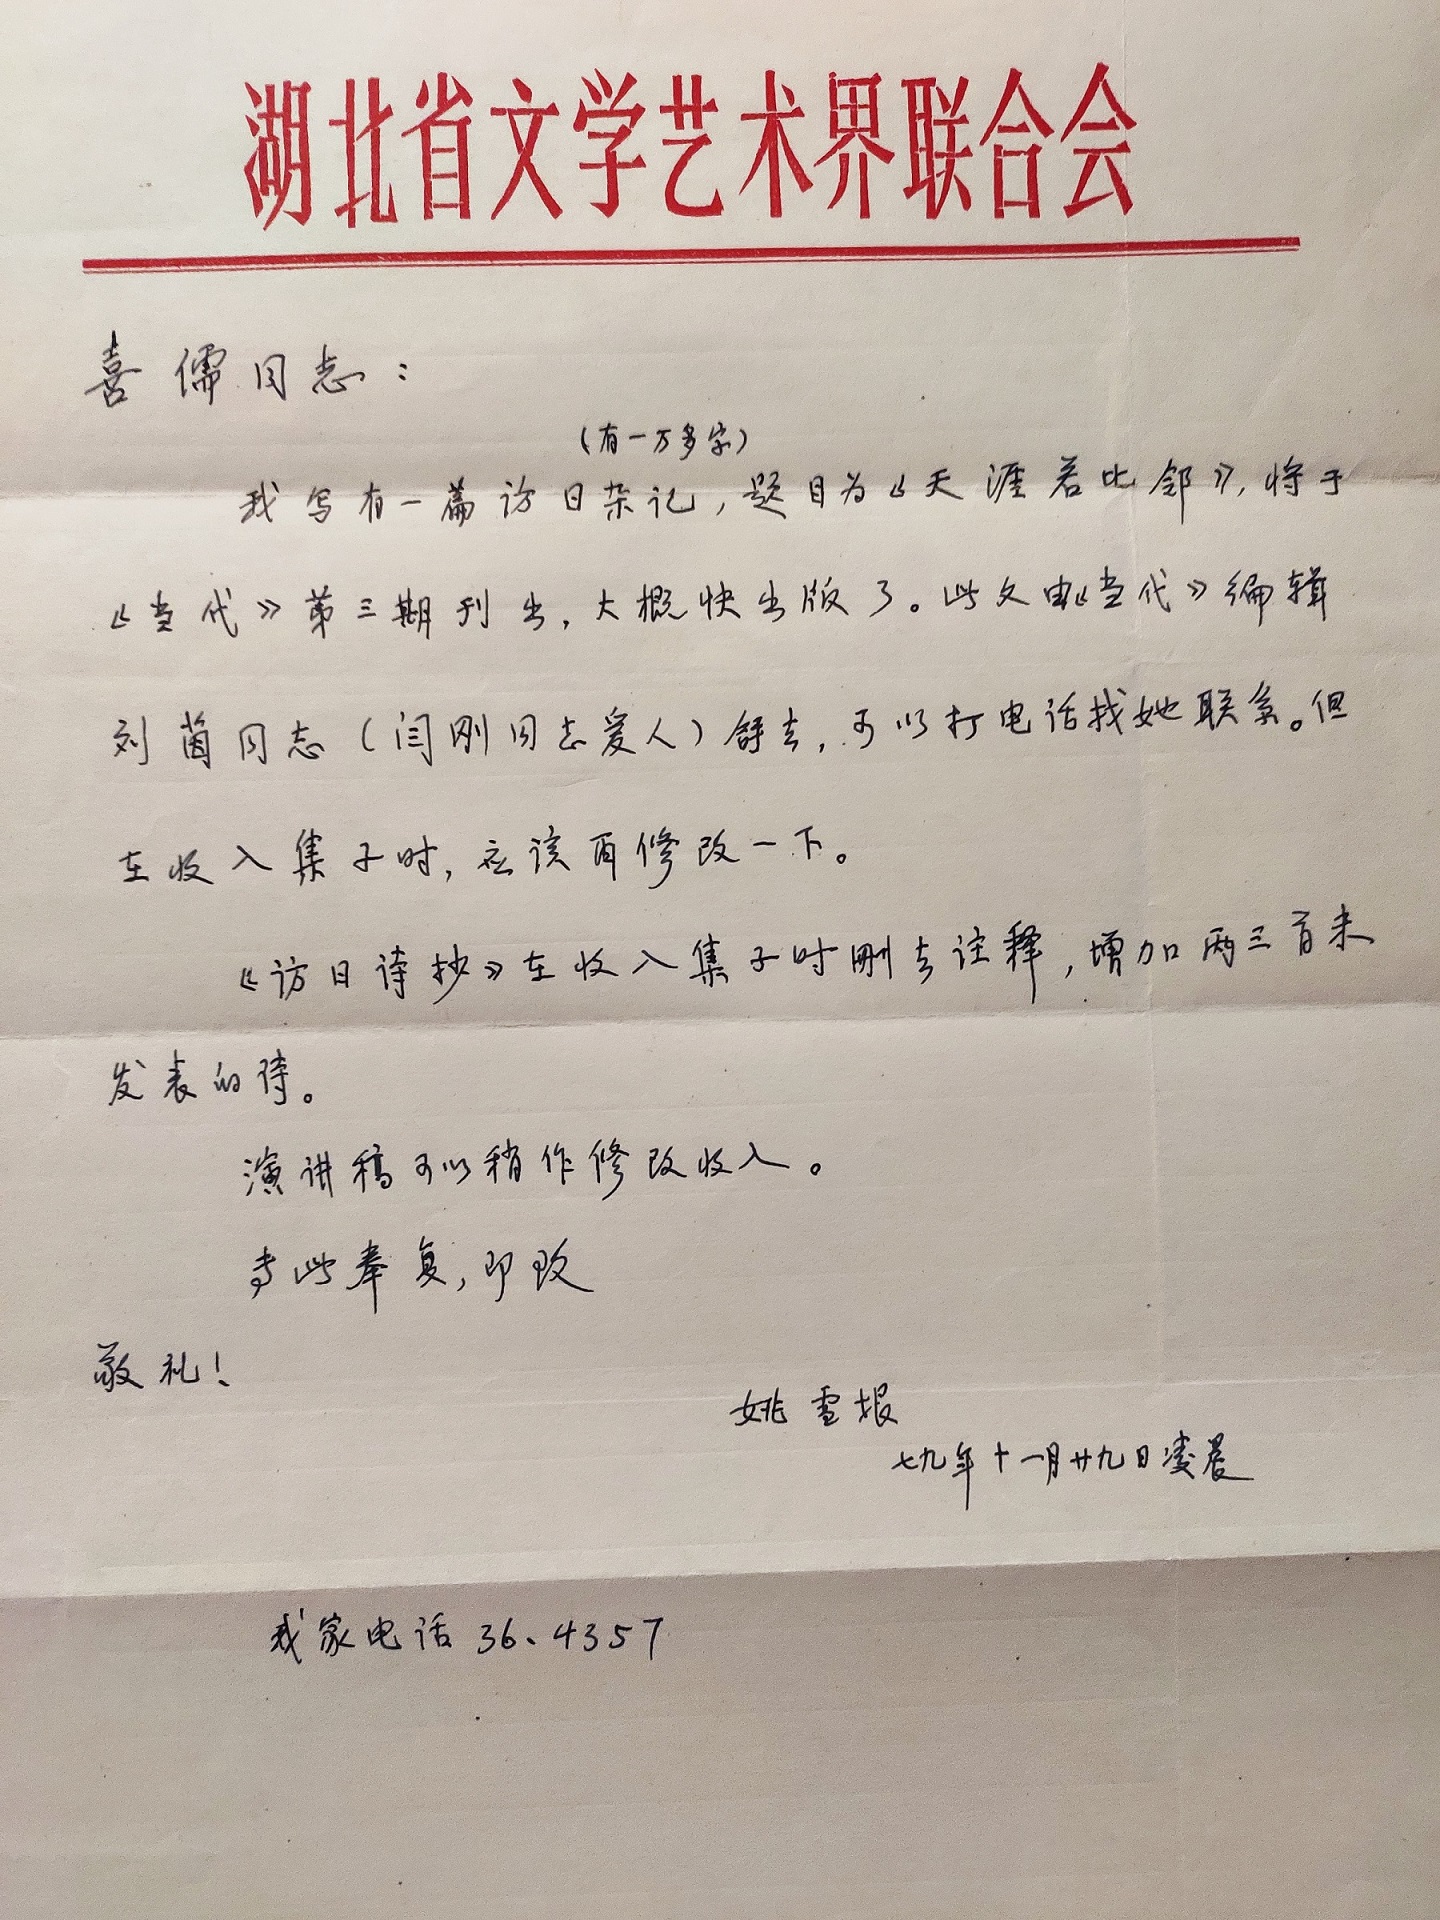 湖北省文学艺术界联合会
喜儒同志：
（有一万多字）
我写有一篇访日杂记，题目为《天涯若比邻》，将于
《当代》第三期刊出，大概快出版了。此文由《当代》编辑
刘茵同志（闫刚同志爱人）拿去，可以打电话找她联系。但
在收入集子时，应该再修改一下。
《访日诗抄》在收入集子时删去注释，增加两三首未
发表的诗。
演讲稿可以稍作修改收入。
专此奉复，即致
敬礼！
姚雪垠
七九年十一月廿九日凌晨
我家电话36、4357